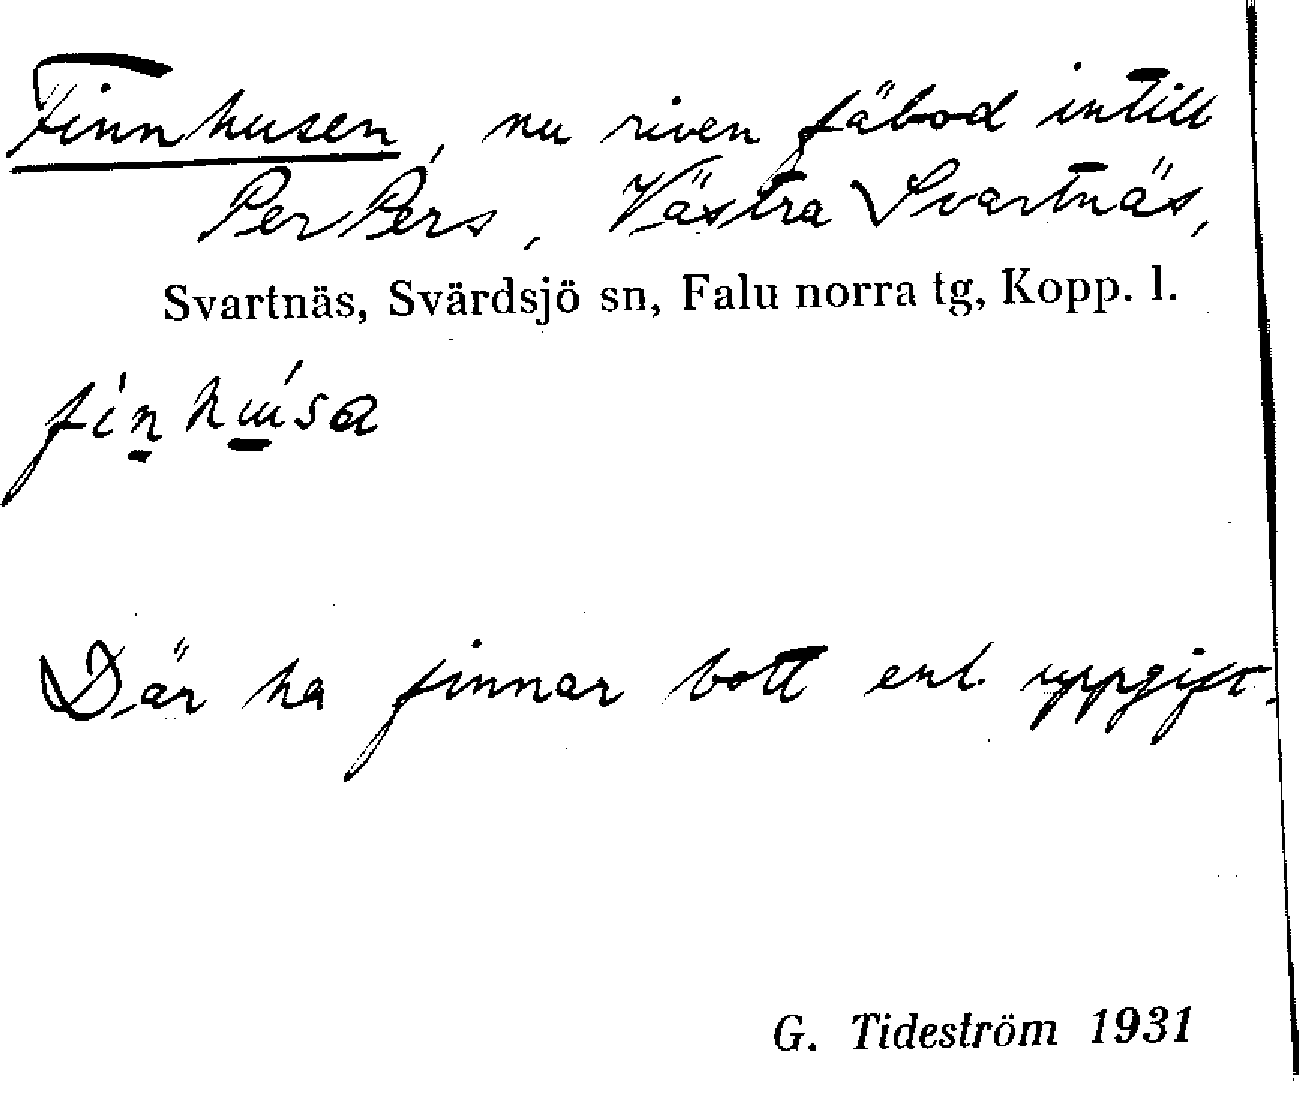 Finnhusen, nu riven fäbod intill
Per Pers, Västra Svartnäs,
Svartnäs, Svärdsjö sn, Falu norra tg, Kopp. l.
Där ha finnar bott enl. uppgift.
G. Tideström 1931